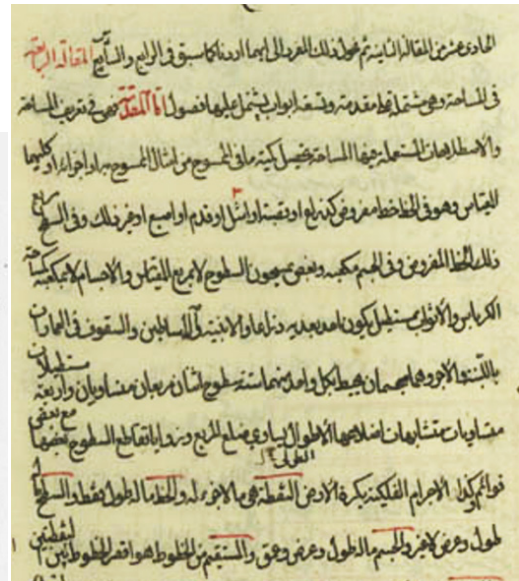 الحادى عشر من المقالة الثانية ثم نحول ذلك المفرد الى ايهما اردنا كما سبق فى الرابع والسابع المقالة الرابعة
فى المساحة وهى مشتملة على مقدمة وتسعة ابواب يشتمل عليها فصول اما المقدمة فهى فى تعريف المساحة
والاصطلاحات المستعملة فيها المساحة تحصيل كمية ما فى الممسوح من امثال الممسوح به او اجزاءه او كليهما
المقياس وهو فى الخط خط مفروض كذراع او قصبة او اشل او قدم او اصبع او غير ذلك وفى السطح مربع
ذلك الخط المفروض وفى الجسم مكعبه وبعض يمسحون السطوح لا بمربع المقياس والاجسام لا بمكعبه كمساحة
الكرباس والاثواب بمستطيل يكون احد بعديه ذراعا والابنية الاساطين والسقوف فى العمارات
باللبنة والاجر وهما مجسمان يحيط بكل واحد منهما ستة سطوح اثنان مربعان متساويان واربعة مستطيلات
متساويات متشابهات اضلاعها الاطول يساوى ضلع المربع وزوايا تقاطع السطوح بعضها مع بعض
الطول
قوائم وكذا الاجرام الفلكية بكرة الارض النقطة هى ما لا جزء له والخط ماله طول فقط والسطح ماله
طول وعرض لا غير والجسم ماله طول وعرض وعمق والمستقيم من الخطوط هو اقصر الخطوط بين النقطتين